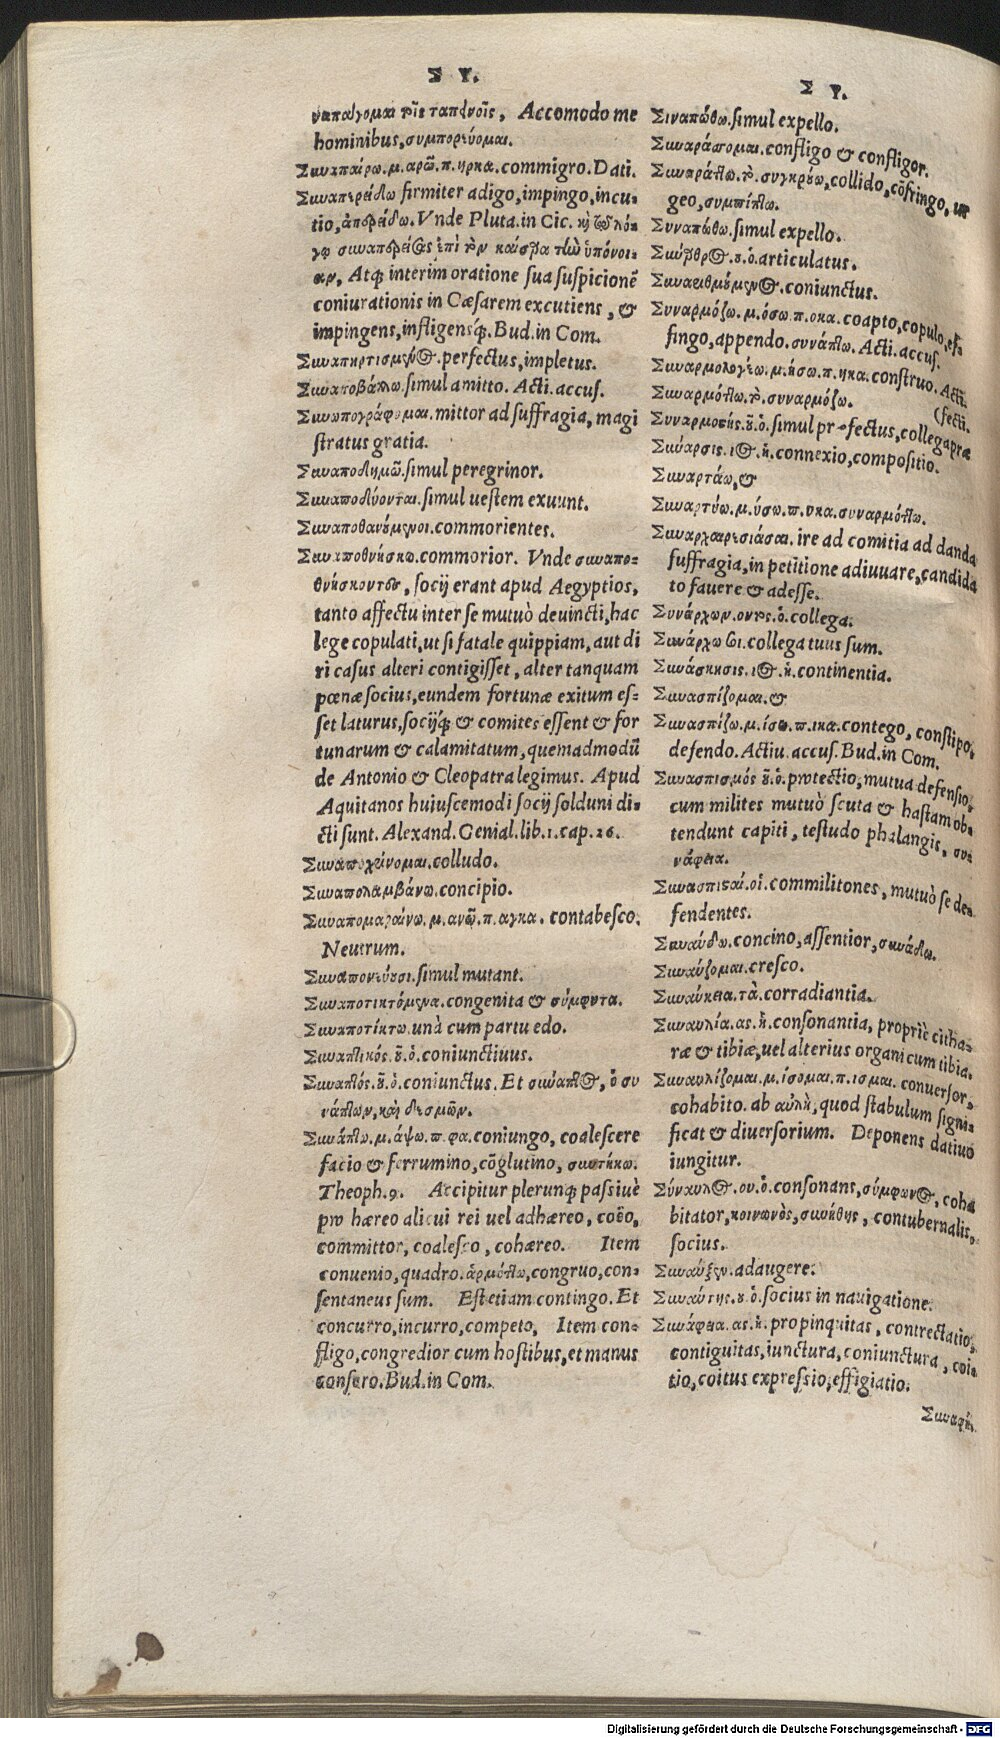 Σ Υ.
ναπάγομαι τοῖς ταπεινοῖς, Accomodo me
hominibus, συμπορεύομαι.
Συναπαίρω.μ.αρῶ.π.ηρκα.commigro. Dati.
Συναπερείδω firmiter adigo, impingo, incu-
tio, ἀπερείδω. Vnde Pluta. in Cic. κὴ τῷ λό-
γῳ συναπερείσας ἐπὶ τὸν καίσαρα τὴν ὑπόνοι-
αν, Atq; interim oratione sua suspicionē
coniurationis in Cæsarem excutiens, &
impingens, infligensq́;. Bud. in Com.
Συναπηρτισμένος.perfectus, impletus.
Συναποβάλλω.simul amitto. Acti. accus.
Συναπογράφομαι. mittor ad suffragia, magi
stratus gratia.
Συναποδημῶ.simul peregrinor.
Συναποδύονται.simul uestem exuunt.
Συναποθανούμενοι.commorientes.
Συναποθνήσκω.commorior. Vnde συναπο-
θνήσκοντες, socij erant apud Aegyptios,
tanto affectu inter se mutuò deuincti, hac
lege copulati, ut si fatale quippiam, aut di
ri casus alteri contigisset, alter tanquam
pœnæ socius, eundem fortunæ exitum es-
set laturus, socijq́; & comites essent & for
tunarum & calamitatum, quemadmodū
de Antonio & Cleopatra legimus. Apud
Aquitanos huiuscemodi socij solduni di-
cti sunt. Alexand. Genial. lib. 1. cap. 26.
colludo.
Συναπολαμβάνω.concipio.
Συναπομαραίνω.μ.ανῶ.π.αγκα. contabesco.
Neutrum.
Συναπονεύουσι.simul mutant.
Συναποτικτόμενα.congenita & σύμφυτα.
Συναποτίκτω.unà cum partu edo.
Συναπτικός.οῦ.ὁ.coniunctiuus.
Συναπτός.οῦ.ὁ.coniunctus. Et συναπτὸς, ὁ συ
νάπτων, καὶ δεσμῶν.
Συνάπτω.μ.άψω.π.φα.coniungo, coalescere
facio & ferrumino, cōglutino, συστήκω.
Theoph. 9. Accipitur plerunq; passiuè
pro hæreo alicui rei uel adhæreo, coëo,
committor, coalesco, cohæreo. Item
conuenio, quadro. ἁρμόττω, congruo, con-
sentaneus sum. Est etiam contingo. Et
concurro, incurro, competo, Item con-
fligo, congredior cum hostibus, et manus
consero. Bud. in Com.
Σ Υ.
Συναπώθω.simul expello.
Συναράσσομαι.confligo & confligor.
Συναράττω.τὸ.συγκρούω, collido, cōfringo, ur
geo, συμπίπτω.
Συναπώθω.simul expello.
Σύναρθρος.ου.ὁ.articulatus.
Συναριθμούμενος.coniunctus.
Συναρμόζω.μ.όσω.π.οκα. coapto, copulo, ef-
fingo, appendo. συνάπτω. Acti. accus.
Συναρμολογέω.μ.ήσω.π.ηκα. construo. Acti.
Συναρμόττω.τὸ.συναρμόζω.
(fecti.
Συναρμοστής.οῦ.ὁ. simul præfectus, collega præ
Σύναρσις.ιος.ἡ.connexio, compositio.
Συναρτάω, &
Συναρτύω.μ.ύσω.π.υκα.συναρμόττω.
Συναρχαιρεσιάσαι. ire ad comitia ad danda
suffragia, in petitione adiuuare, candida
to fauere & adesse.
Συνάρχων.οντος.ὁ.collega.
Συνάρχω σοι.collega tuus sum.
Συνάσκησις.ιος.ἡ.continentia.
Συνασπίζομαι. &
Συνασπίζω.μ.ίσω.π.ικα.contego, constipo,
defendo. Actiu. accus. Bud. in Com.
Συνασπισμός οῦ.ὁ. protectio, mutua defensio,
cum milites mutuò scuta & hastam ob-
tendunt capiti, testudo phalangis, συ-
νάφεια.
Συνασπισταί.οἱ. commilitones, mutuò se de-
fendentes.
Συναύδω.concino, assentior, συνάδω.
Συναύξομαι.cresco.
Συναύγεια.τὰ.corradiantia.
Συναυλία.ας.ἡ.consonantia, propriè citha-
ræ & tibiæ, uel alterius organi cum tibia.
Συναυλίζομαι.μ.ίσομαι.π.ισμαι. conuersor,
cohabito. ab αὐλὴ, quod stabulum signi-
ficat & diuersorium. Deponens datiuo
iungitur.
Σύναυλος.ου.ὁ.consonans, σύμφωνος, coha
bitator, κοινωνὸς, συνήθης, contubernalis,
socius.
Συναύξειν.adaugere.
Συναύτης.ου.ὁ.socius in nauigatione.
Συνάφεια.ας.ἡ. propinquitas, contrectatio,
contiguitas, iunctura, coniunctura, coi-
tio, coitus expressio, effigiatio.
Συναφὴς
Digitalisierung gefördert durch die Deutsche Forschungsgemeinschaft - DFG